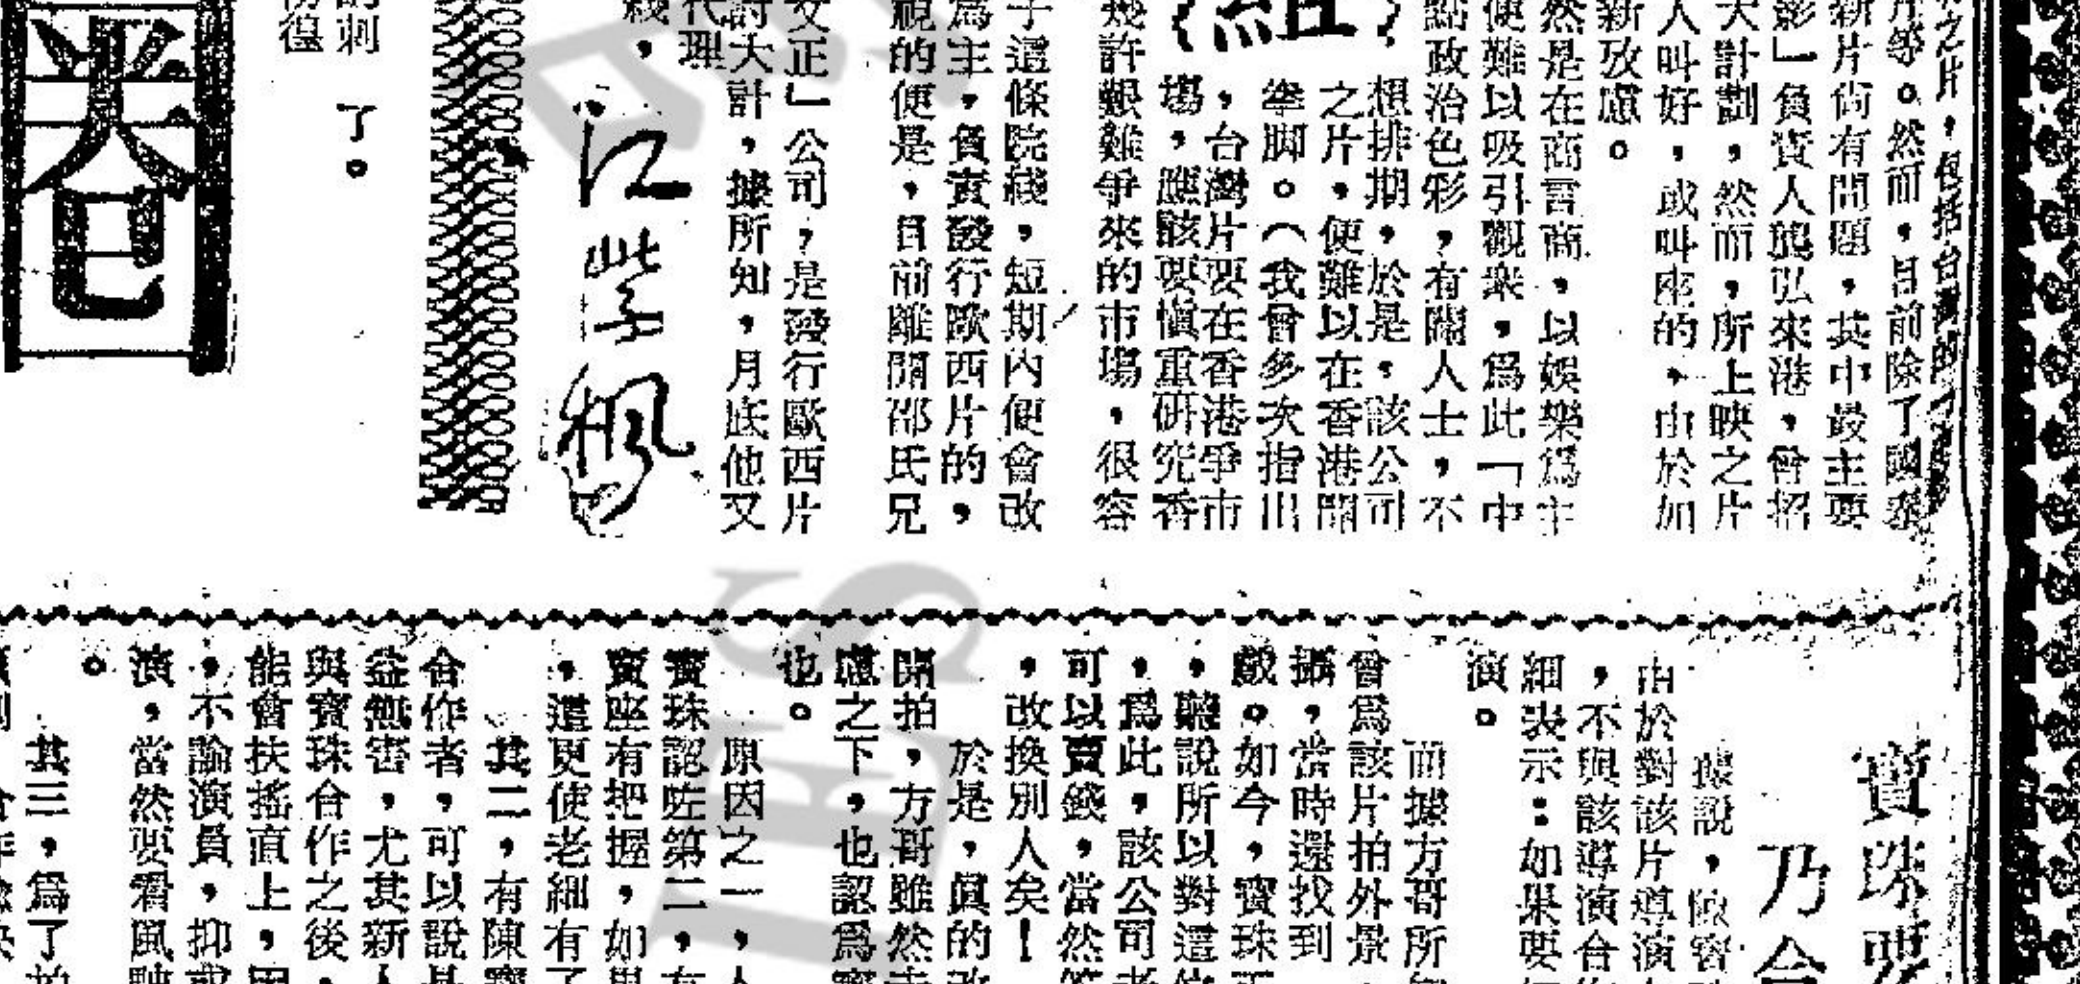 之片，包括台灣的
片等。然而，目前除了國泰
新片尚有問題，其中最主要
影」負責人龔弘來港，曾招
大計劃，然而，所上映之片
人叫好，或叫座的，由於加
新攷慮。
然是在商言商，以娛樂爲主
便難以吸引觀衆，爲此「中
點政治色彩，有關人士，不
想排期，於是，該公司
之片，便難以在香港開
拳脚。（我曾多次指出
，台灣片要在香港爭市
場，應該要慎重研究香
幾許艱難爭來的市場，很容
組
子這條院綫，短期內便會改
爲主，負責發行歐西片的，
視的便是，目前離開邵氏兄
文正」公司，是發行歐西片
討大計，據所知，月底他又
代理
綫，
江紫楓
刺了。
圈
寶珠要
乃會
據說，陳
由於對該片導演
，不與該導演合
細表示：如果要
演。
而據方哥所
曾爲該片拍外景
攝，當時還找到
戲。如今，寶珠
，聽說所以對這
，爲此，該公司老
可以賣錢，當然
，改換別人矣！
於是，眞的改
開拍，方哥雖然
慮之下，也認爲寶
也。
原因之一，人
寶珠認咗第二，有
賣座有把握，如果
，這更使老細有了
其二，有陳寶
合作者，可以說是
益無害，尤其新人
與寶珠合作之後，
能會扶搖直上，因
，不論演員，抑或
演，當然要看風駛
。
其三，爲了拍